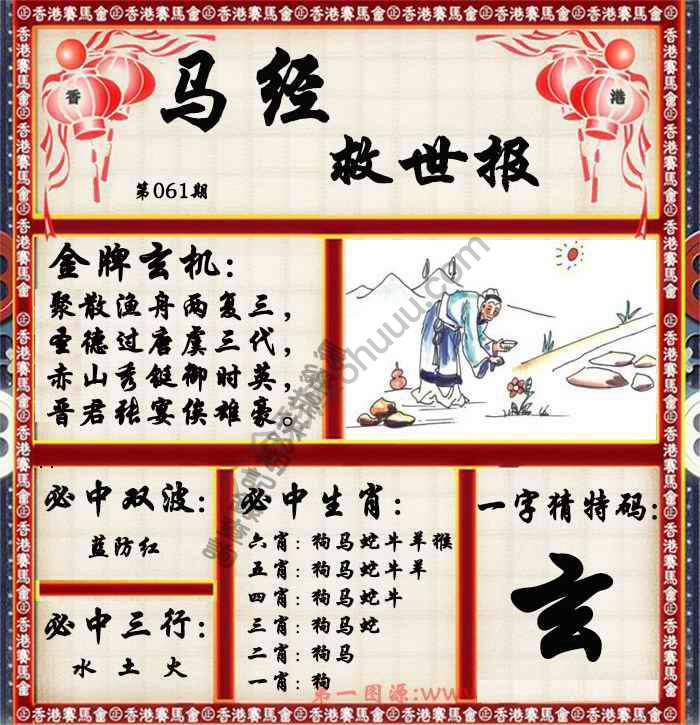 香港賽馬會
香
港
马经
救世报
第061期
金牌玄机:
聚散渔舟两复三，
圣德过唐虞三代，
赤山秀铤御时英，
晋君张宴俟雄豪。
必中双波:
蓝防红
必中三行:
水 土 火
必中生肖:
六肖: 狗马蛇牛羊猴
五肖: 狗马蛇牛羊
四肖: 狗马蛇牛
三肖: 狗马蛇
二肖: 狗马
一肖: 狗
一字猜特码:
玄
第一图源:www